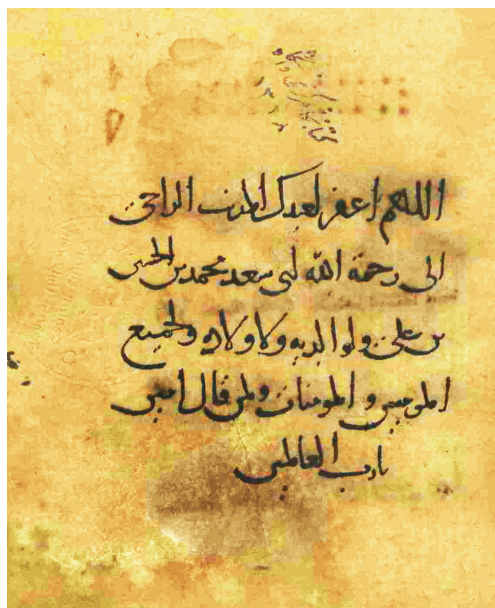 اللهم اغفر لعبدك المذنب الراجي
الى رحمة الله ابى سعد محمد بن الحسين
بن على ولوالديه ولاولاده ولجميع
المومنين والمومنات ولمن قال امين
يا رب العالمين